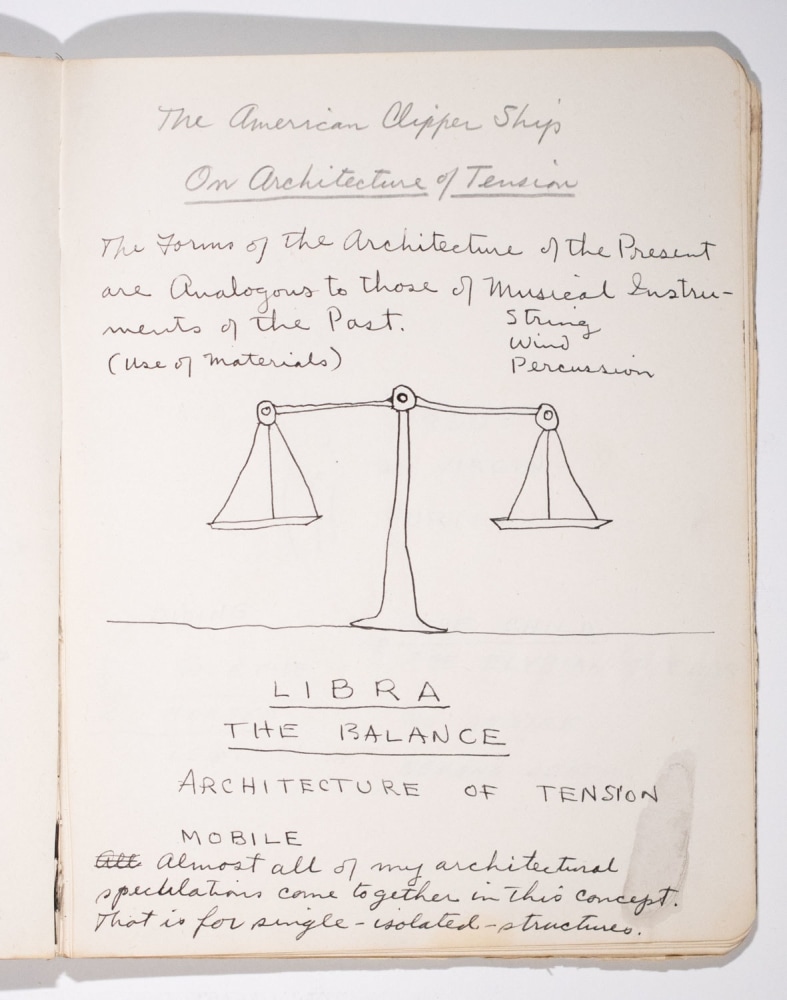 The American Clipper Ship
On Architecture of Tension
The Forms of the Architecture of the Present
are Analogous to those of Musical Instru-
ments of the Past.
String
Wind
(Use of Materials)
Percussion
LIBRA
THE BALANCE
ARCHITECTURE OF TENSION
MOBILE
All Almost all of my architectural
speculations come together in this concept.
That is for single-isolated-structures.